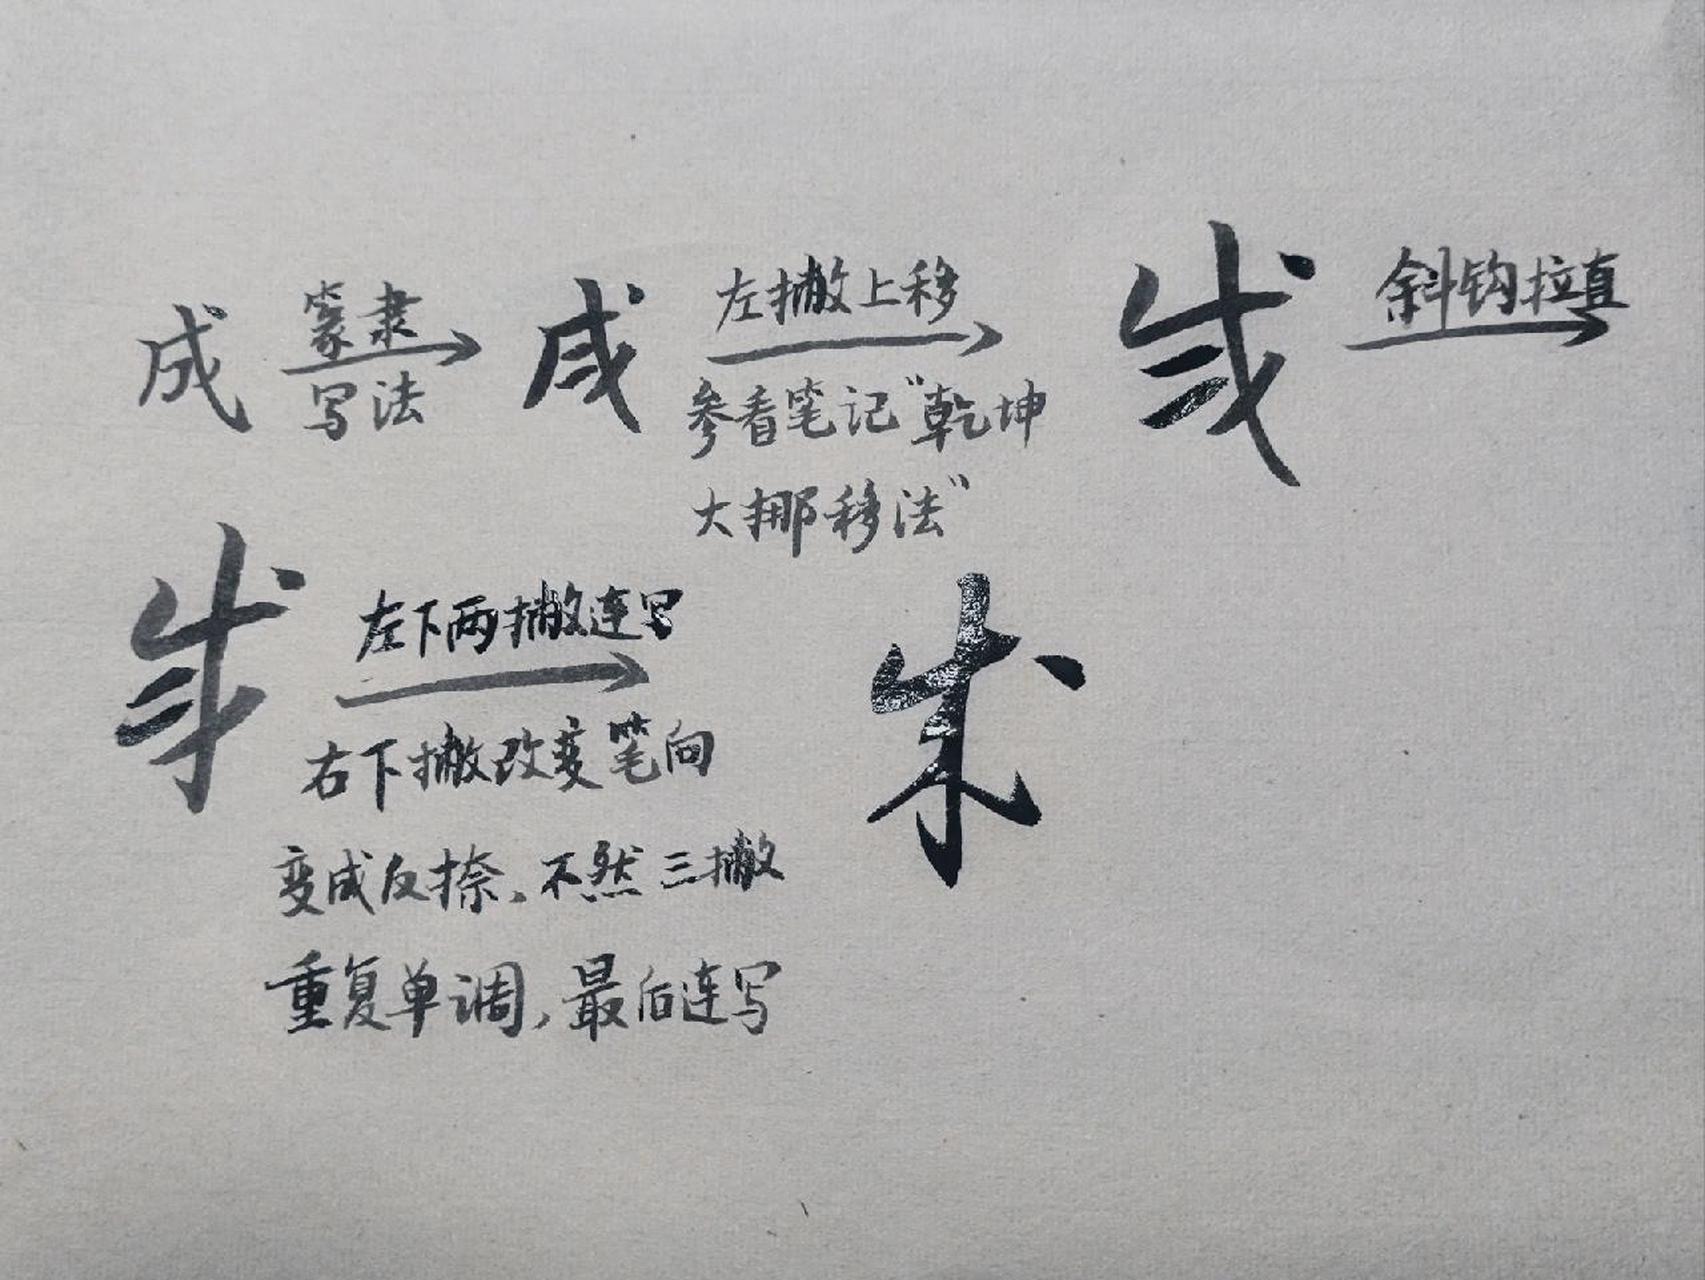 成 篆隶 成 左撇上移 成 斜钩拉直
写法 参看笔记“乾坤
大挪移法”
成 左下两撇连写 成
右下撇改变笔向
变成反捺,不然三撇
重复单调,最后连写